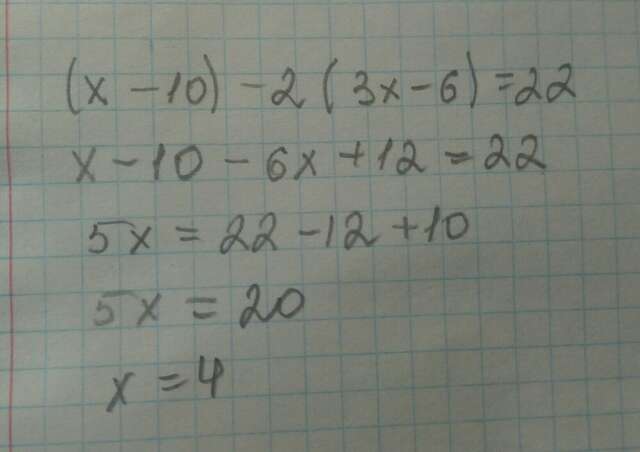 (x - 10) - 2 (3x - 6) = 22
x - 10 - 6x + 12 = 22
5x = 22 - 12 + 10
5x = 20
x = 4